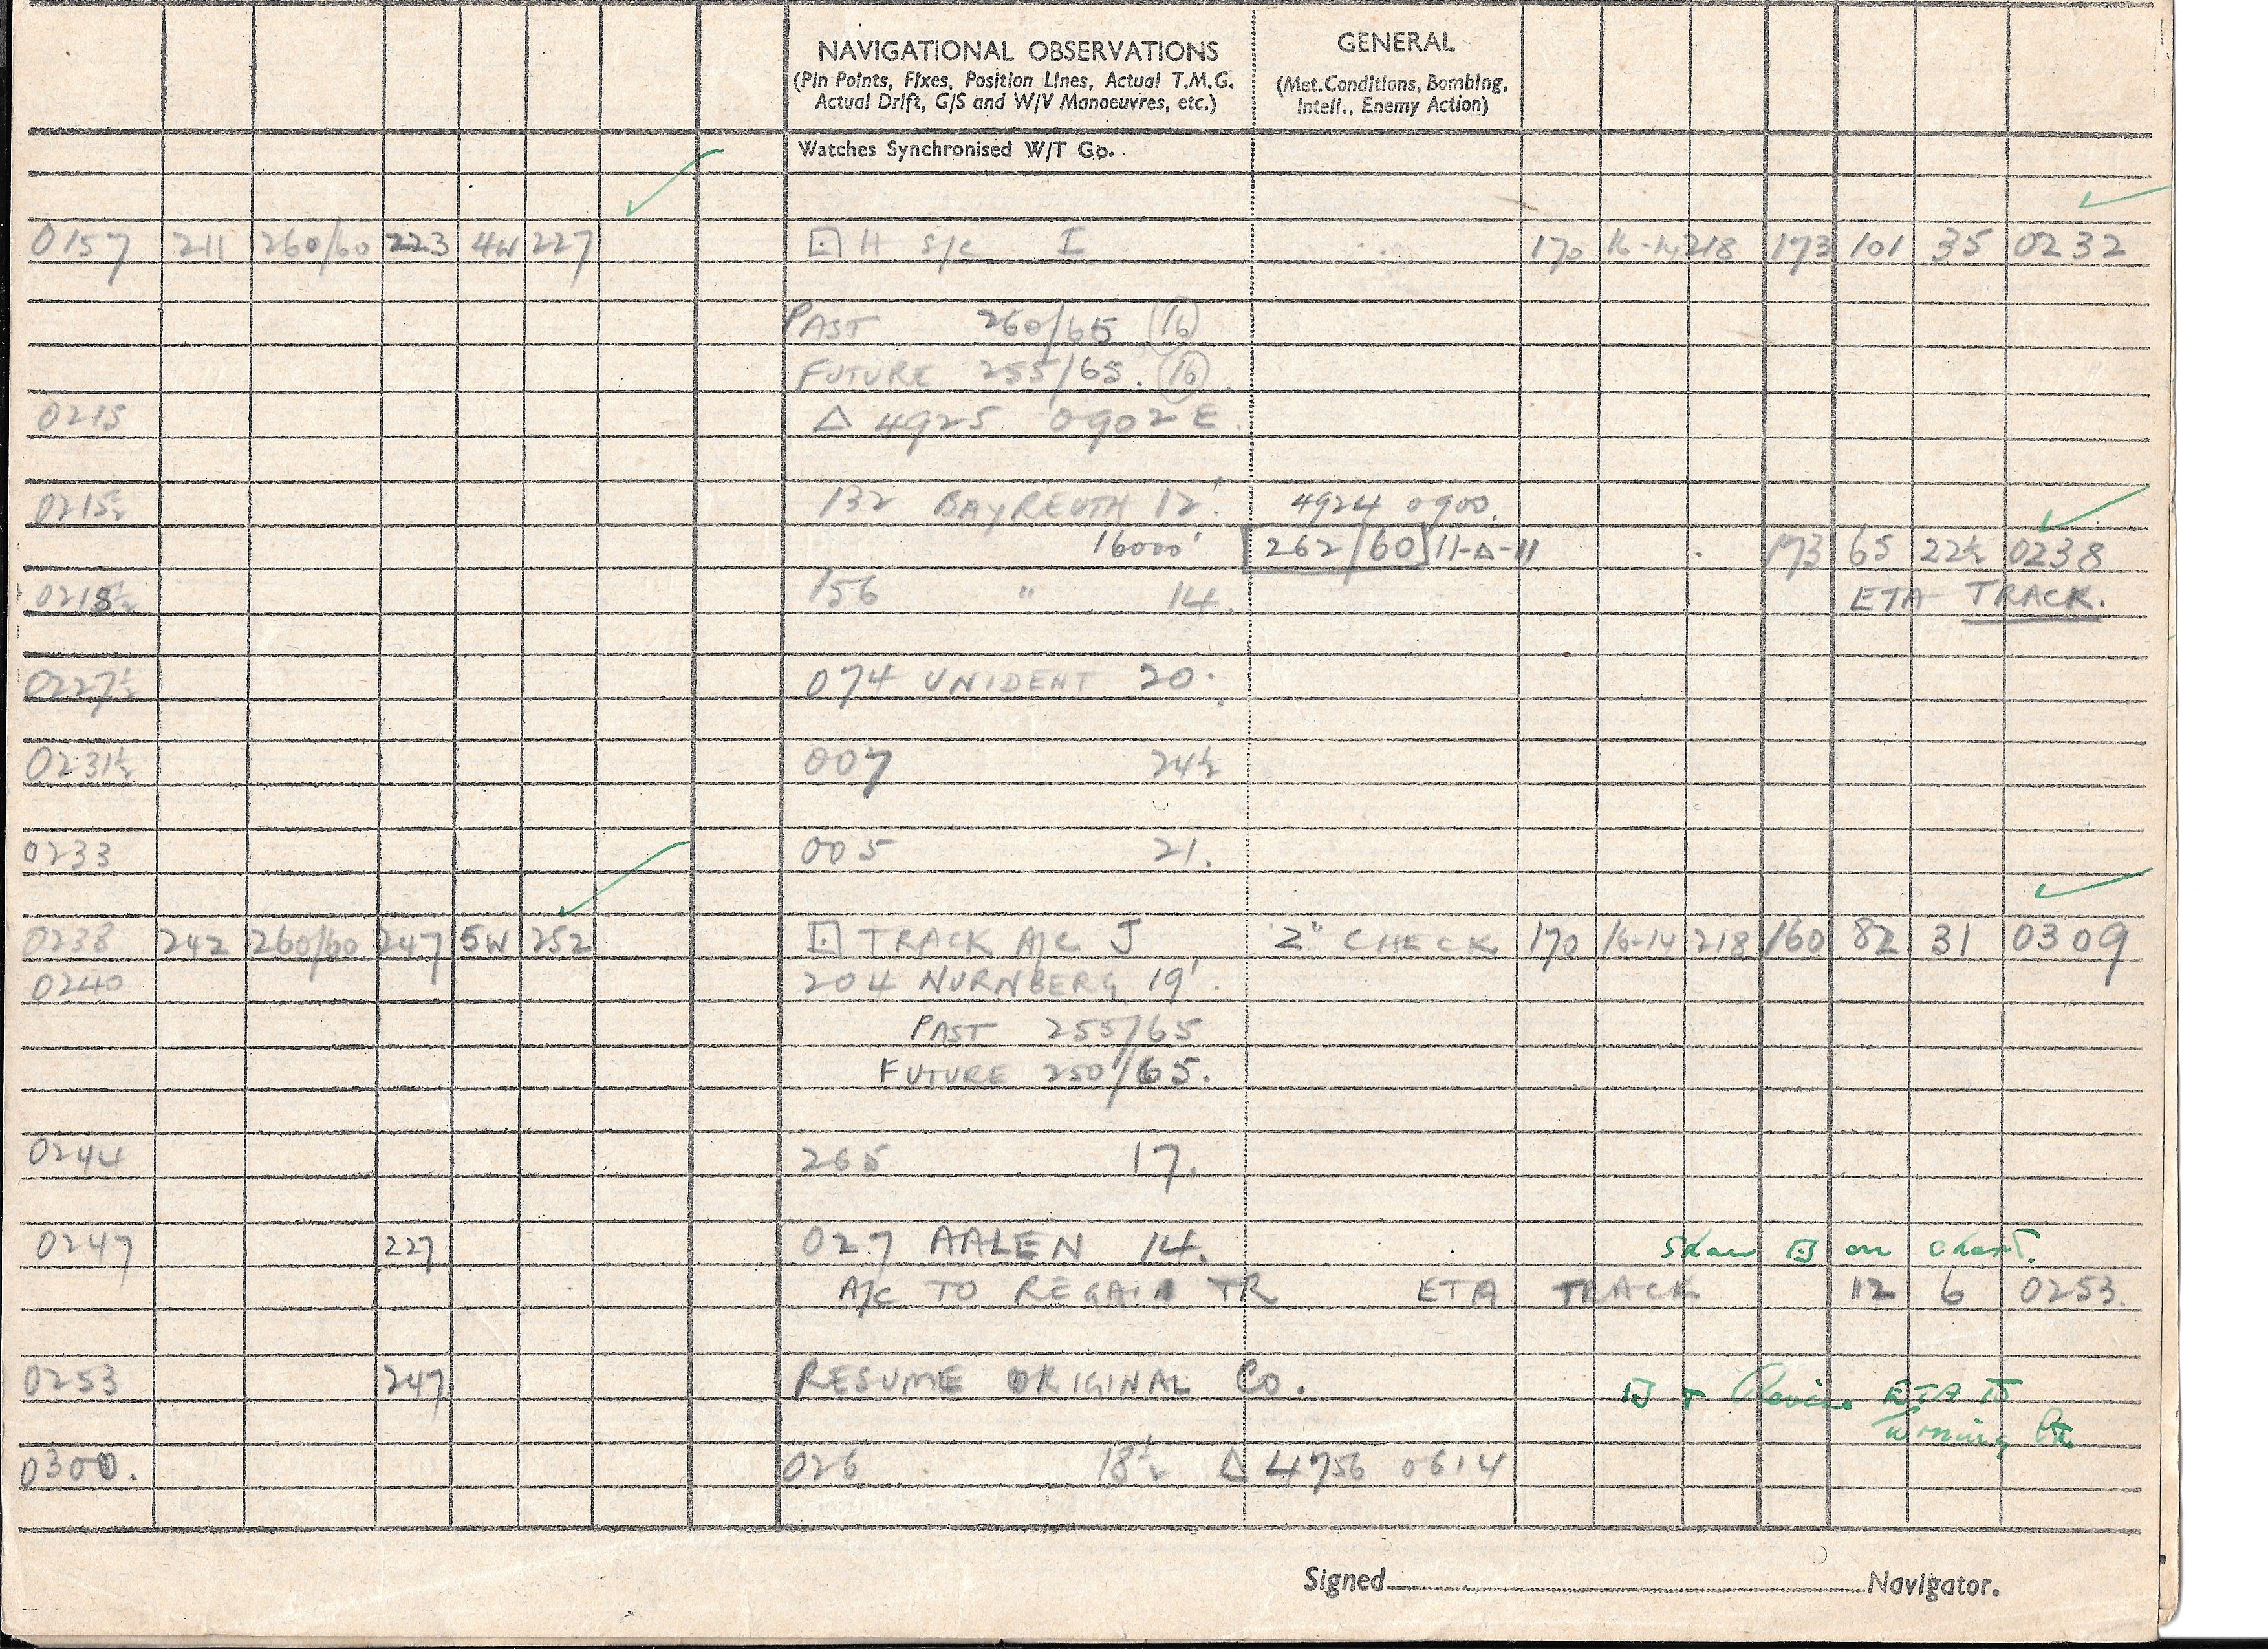 NAVIGATIONAL OBSERVATIONS GENERAL
(Pin Points, Fixes, Position Lines, Actual T.M.G. (Met. Conditions, Bombing,
Actual Drift, G/S and W/V Manoeuvres, etc.) Intell., Enemy Action)
Watches Synchronised W/T Go.
0157 211 260/60 223 4W 227 H S/C I 170 16-14 218 173 101 35 0232
PAST 260/65 16
FUTURE 255/65. 16
0215 Δ 4925 0902E.
0215½ 132 BAYREUTH 12'. 4924 0900.
16000' 262/60 11-Δ-11 173 65 22½ 0238
0218½ 156 " 14. ETA TRACK.
0227½ 074 UNIDENT 20.
0231½ 007 24½
0233 005 21.
0238 242 260/60 247 5W 252 TRACK A/C J 2" CHECK 170 16-14 218 160 82 31 0309
0240 204 NURNBERG 19'.
PAST 255/65
FUTURE 250/65.
0244 265 17.
0247 227 027 AALEN 14. Show on chart.
A/C TO REGAIN TR ETA TRACK 12 6 0253.
0253 247 RESUME ORIGINAL CO. Revise ETA to
turning Pt
0300. 026 18½ Δ 4756 0614
Signed Navigator.